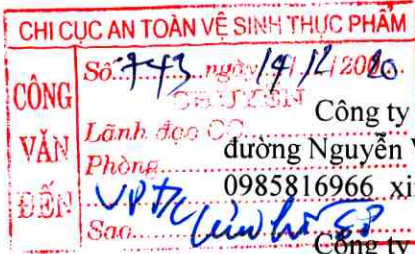 CHI CỤC AN TOÀN VỆ SINH THỰC PHẨM
CÔNG VĂN ĐẾN
Số 743 ngày 14/12/2020
CHUYỂN
Lãnh đạo CC
Phòng
Sao
Công ty
đường Nguyễn V
0985816966 xi
Công ty